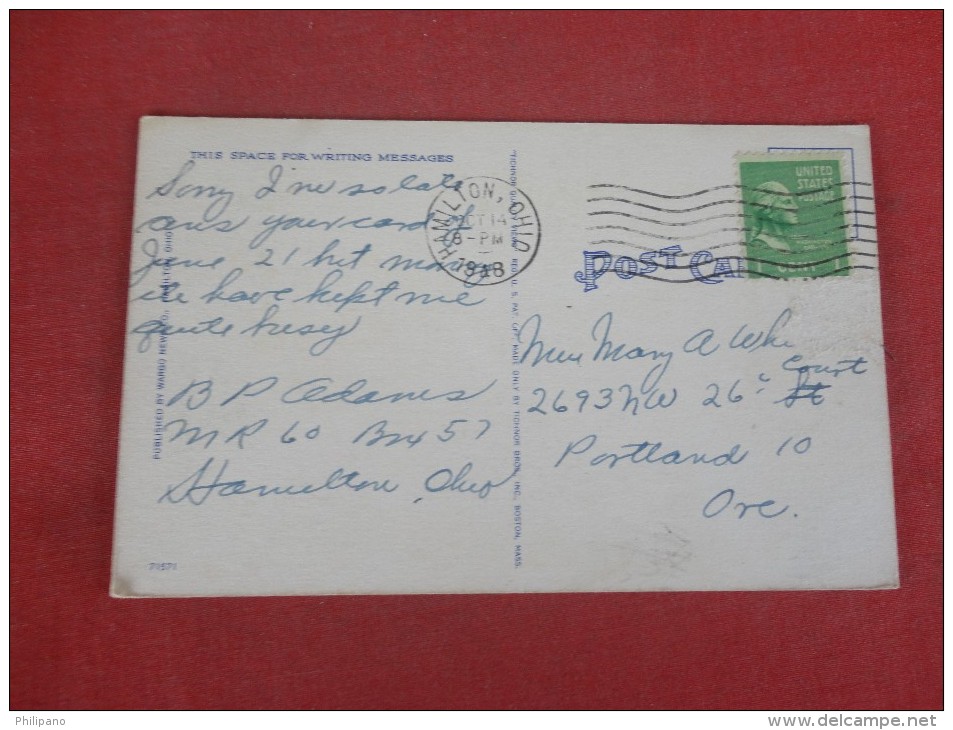 THIS SPACE FOR WRITING MESSAGES
Sorry I'm so late
ans your card of
June 21 but many
have kept me
quite busy
B P Adams
MR 60 Box 57
Hamilton, Ohio
70571
PUBLISHED BY WARGO NEWS CO., HAMILTON, OHIO
"TICHNOR QUALITY VIEWS," REG. U. S. PAT. OFF. MADE ONLY BY TICHNOR BROS., INC., BOSTON, MASS.
HAMILTON, OHIO
OCT 14
8-PM
1948
UNITED
STATES
POSTAGE
1 CENT
POST CA
Mrs Mary A Whi
Court
2693 NW 26 St
Portland 10
Ore.
Philipano
www.delcampe.net